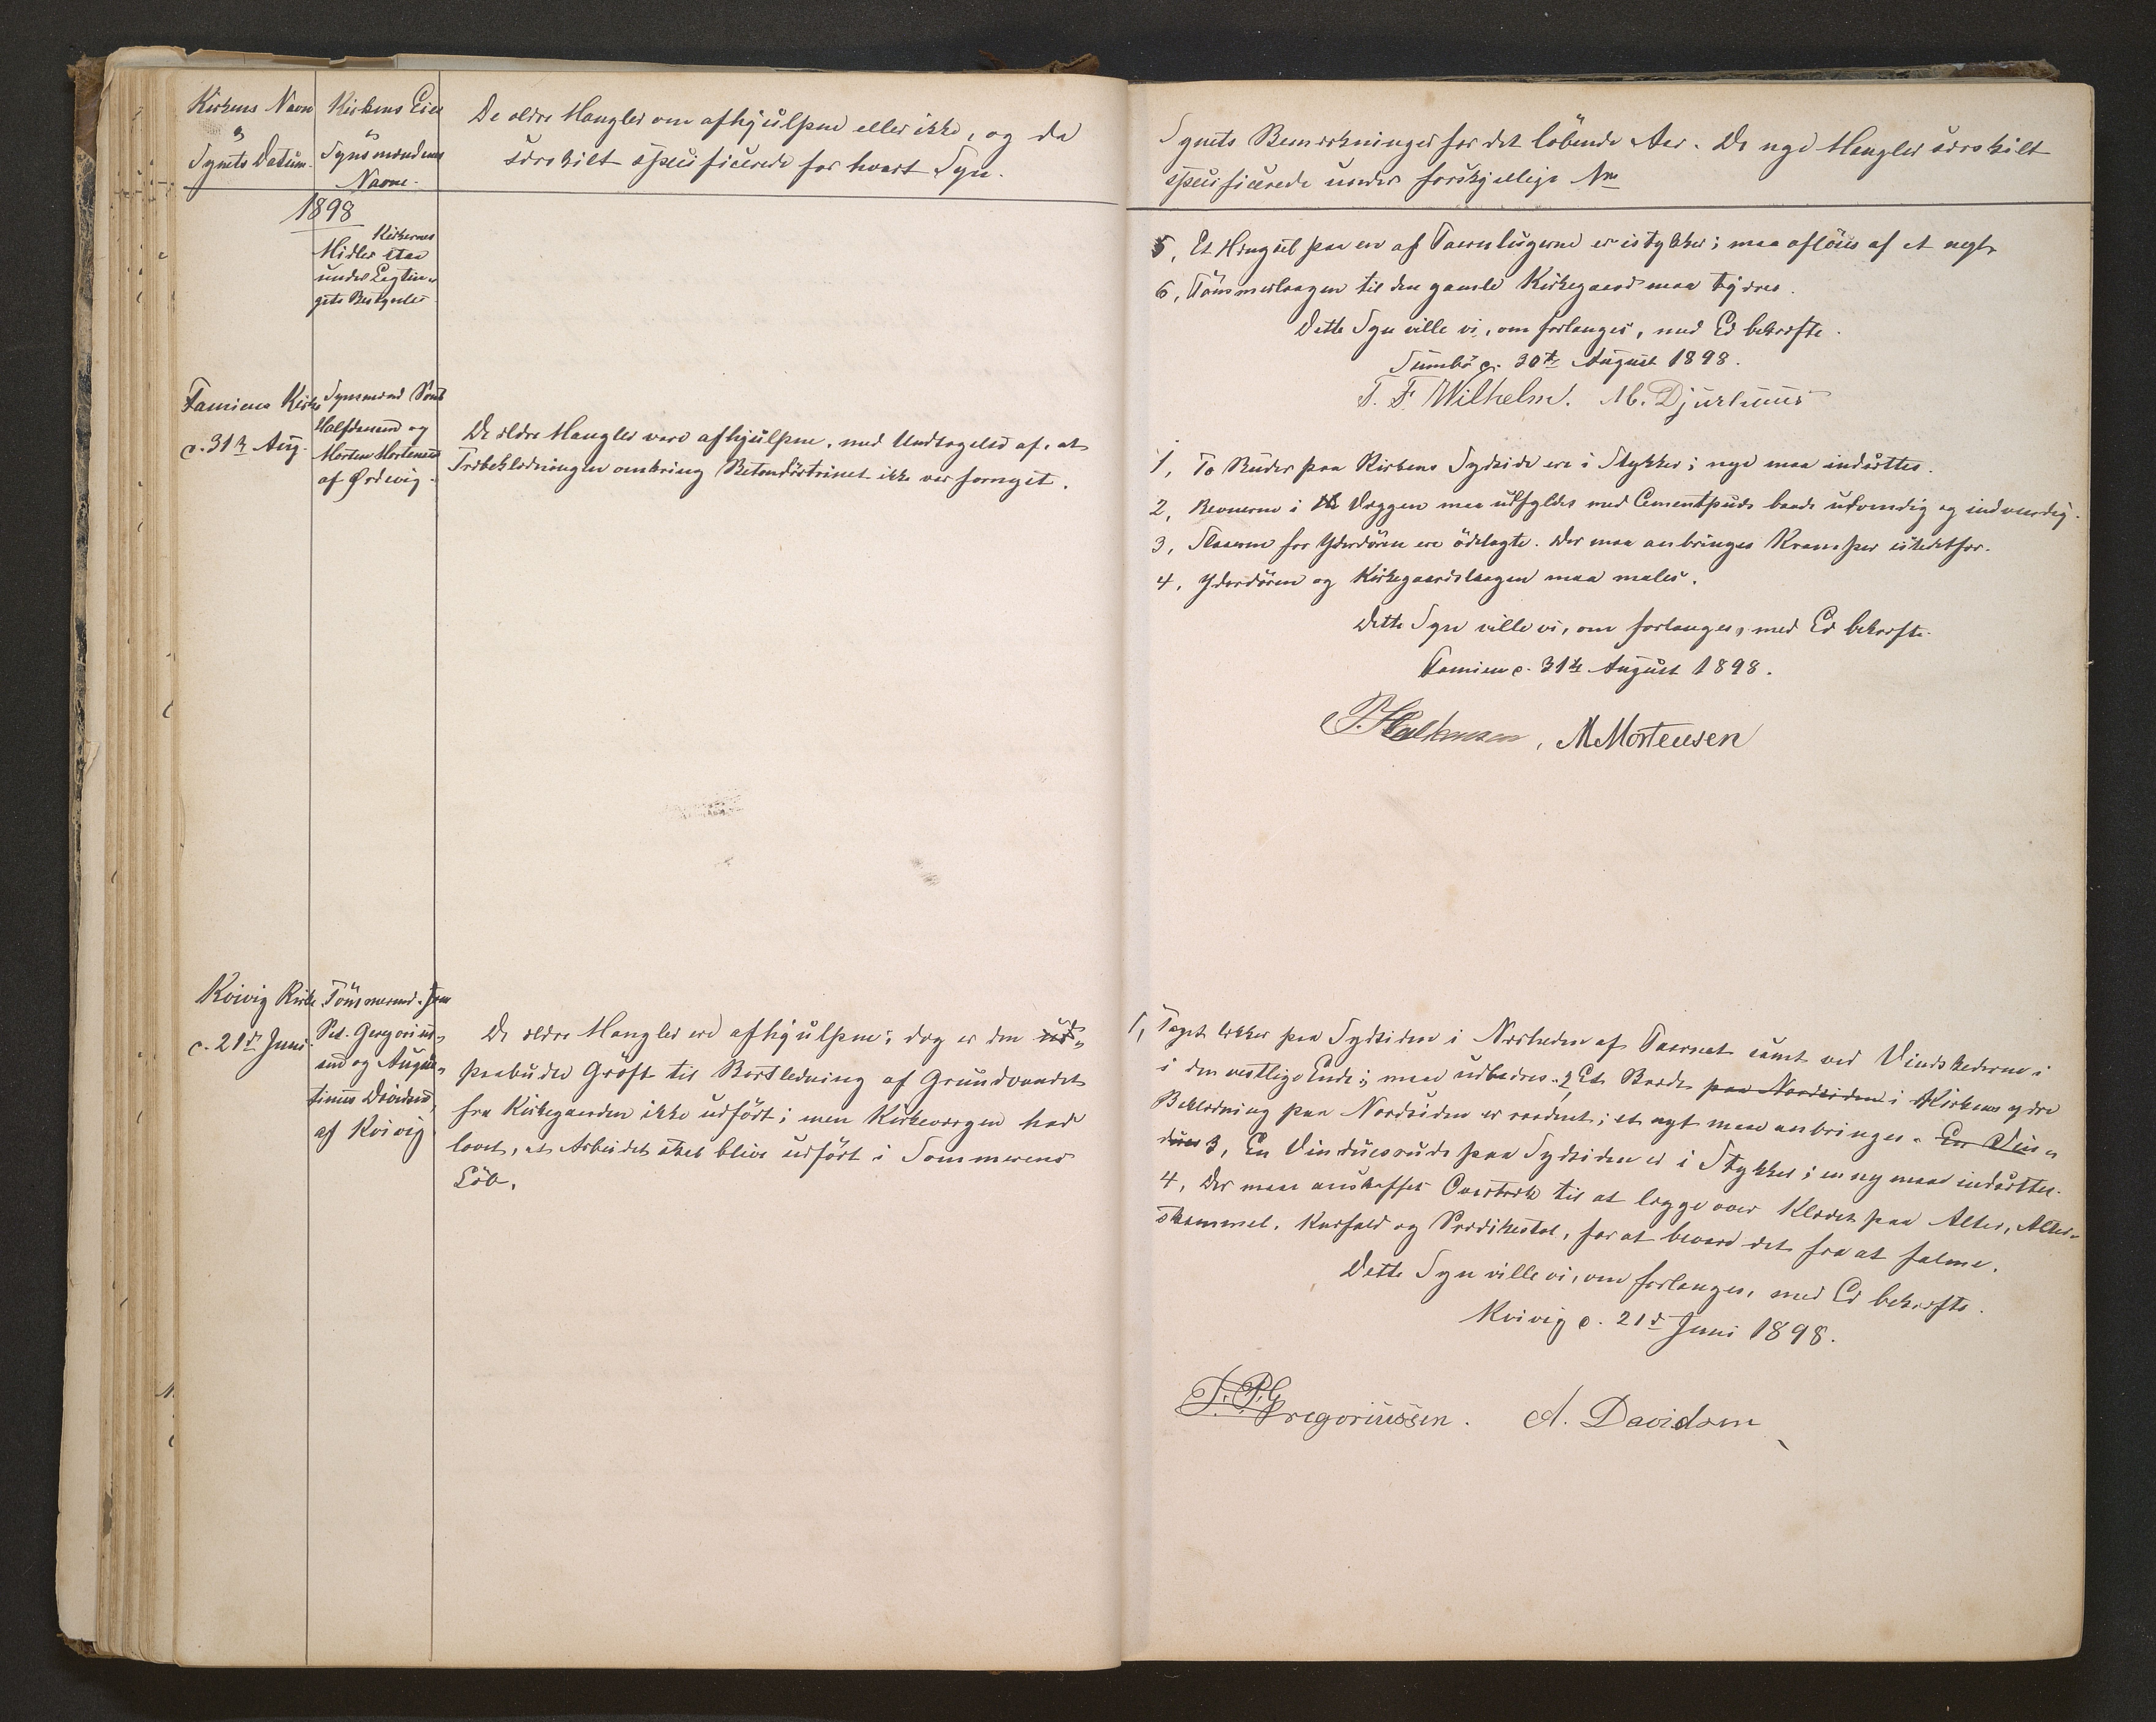 Kirkens Navn
og
Synets Datum.
Kirkens Eier
og
Synsmændenes
Navne.
De ældre Mangler om afhjülpne eller ikke, og da
særskilt specificerede for hvert Syn.
1898
Kirkernes
Midler staa
under Lagtin„
gets Bestyrelse
Famiens Kirke
d. 31te Aug.
Synsmænd Poul
Halfdansen og
Morten Mortensen
af Ørdevig.
De ældre Mangler vare afhjülpne, med Undtagelse af, at
Træbeklædningen omkring Betondörtrinet ikke var fornyet.
Kvivig Kirke
d. 21de Juni.
Tömmermd. Joen
Ped. Gregorius„
sen og Augus„
tinus Davidsen,
af Kvivig
De ældre Mangler ere afhjülpne; dog er den ud„
paabudte Gröft til Bortledning af Grundvandet
fra Kirkegaarden ikke udfört; men Kirkeværgen har
lovet, at Arbeidet skal blive udfört i Sommerens
Löb.
Synets Bemærkninger for det löbende Aar. De nye Mangler særskilt
specificerede under forskjellige Nre
5, Et Hængsel paa en af Taarnlugerne er istykker; maa aflöses af et nyt.
6, Tömmerlaagen til den gamle Kirkegaard maa tjæres.
Dette Syn ville vi, om forlanges, med Ed bekræfte.
Sumbö d. 30te August 1898.
T. F. Wilhelm. M. Djurhuus
1, To Ruder paa Kirkens Sydside ere i Stykker; nye maa indsættes.
2, Revnerne i Væggen maa udfyldes med Cementpuds baade udvendig og indvendig.
3, Slaaerne for Yderdören ere ödelagte. Der maa anbringes Kramper istedetfor.
4, Yderdören og Kirkegaardslaagen maa males.
Dette Syn ville vi, om forlanges, med Ed bekræfte.
Famien d. 31te August 1898.
P. Halfdansen, M Mortensen
1, Taget lækker paa Sydsiden i Nærheden af Taarnet samt ved Vindskederne i
i den vestlige Ende; maa udbedres. 2, Et Bræde paa Nordsiden i Kirkens ydre
Beklædning paa Nordsiden er raadent; et nyt maa anbringes. En Vin„
dues 3, En Vinduesrude paa Sydsiden er i Stykker; en ny maa indsættes.
4, Der maa anskaffes Overtræk til at lægge over Klædet paa Alter, Alter„
skammel, Knæfald og Prædikestol, for at bevare det fra at falme.
Dette Syn ville vi, om forlanges, med Ed bekræfte.
Kvivig d. 21de Juni 1898.
J. P. Gregoriussen. A. Davidsen